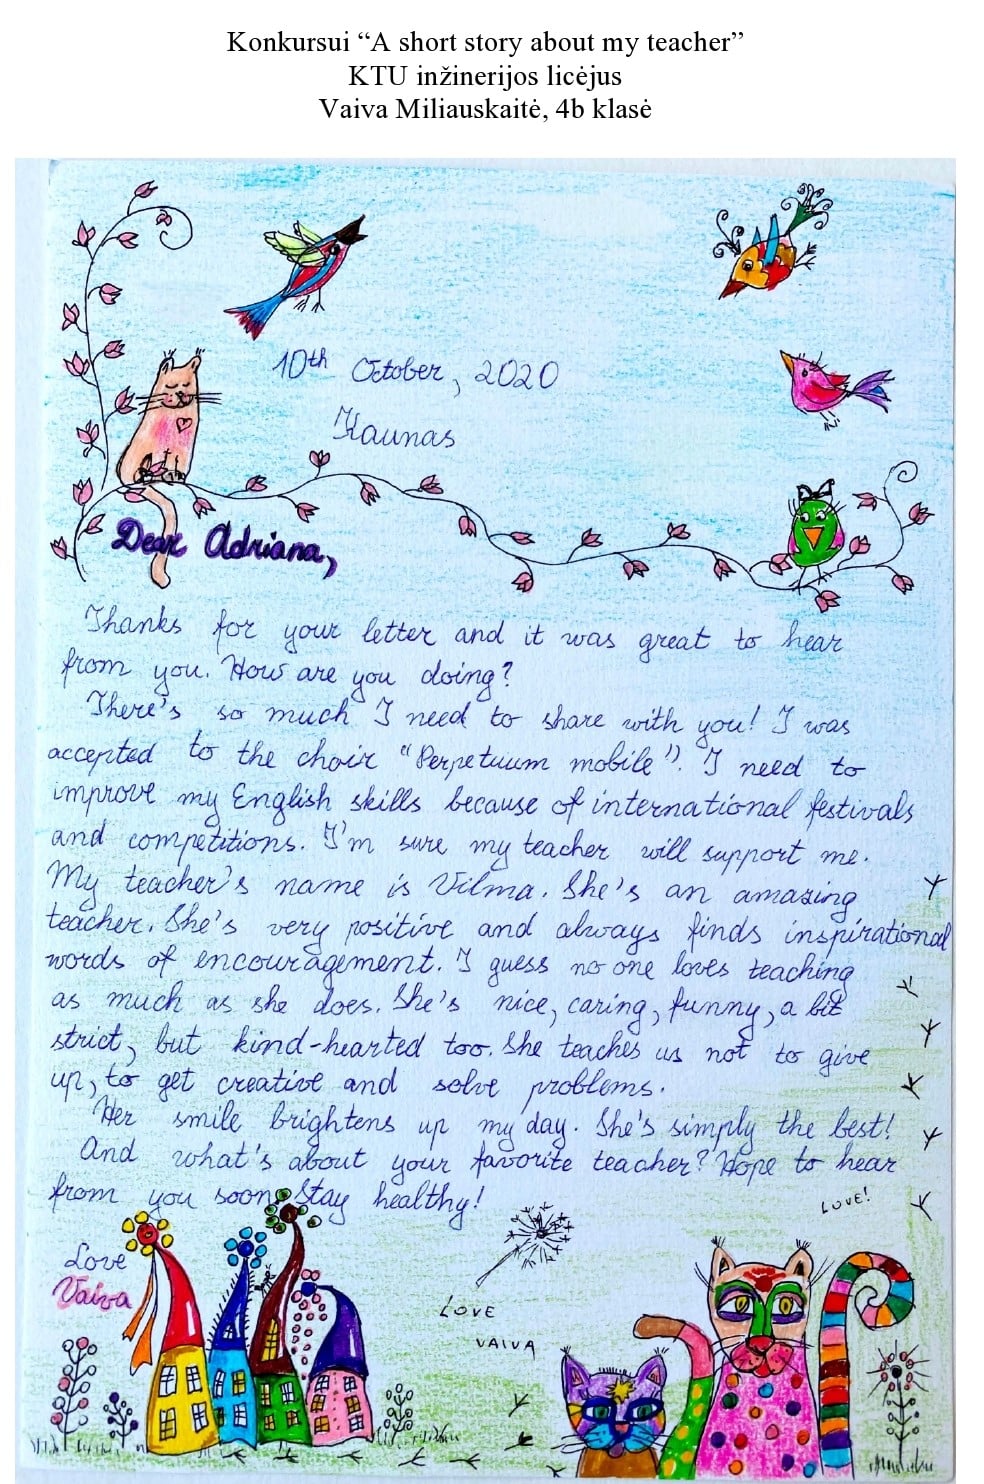 Konkursui “A short story about my teacher”
KTU inžinerijos licėjus
Vaiva Miliauskaitė, 4b klasė
10th October, 2020
Kaunas
Dear Adriana,
Thanks for your letter and it was great to hear
from you. How are you doing?
There's so much I need to share with you! I was
accepted to the choir “Perpetuum mobile”. I need to
improve my English skills because of international festivals
and competitions. I'm sure my teacher will support me.
My teacher's name is Vilma. She's an amazing
teacher. She's very positive and always finds inspirational
words of encouragement. I guess no one loves teaching
as much as she does. She's nice, caring, funny, a bit
strict, but kind-hearted too. She teaches us not to give
up, to get creative and solve problems.
Her smile brightens up my day. She's simply the best!
And what's about your favorite teacher? Hope to hear
from you soon. Stay healthy!
LOVE!
Love
Vaiva
LOVE
VAIVA